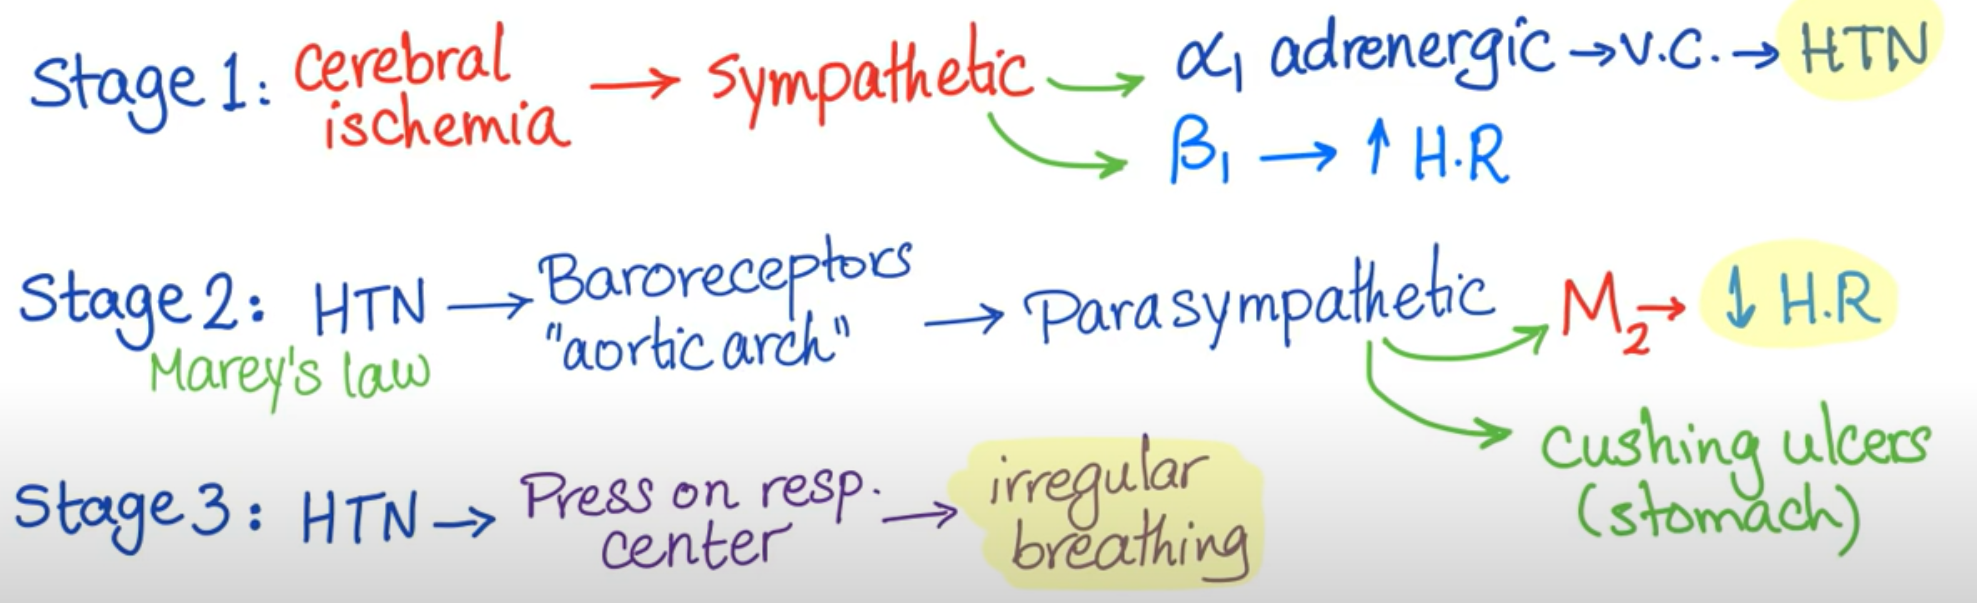 Stage 1: Cerebral ischemia → Sympathetic → α₁ adrenergic → v.c. → HTN
β₁ → ↑ H.R
Stage 2: HTN → Baroreceptors "aortic arch" → Parasympathetic → M₂ → ↓ H.R
Marey's law
cushing ulcers
(stomach)
Stage 3: HTN → Press on resp. center → irregular breathing